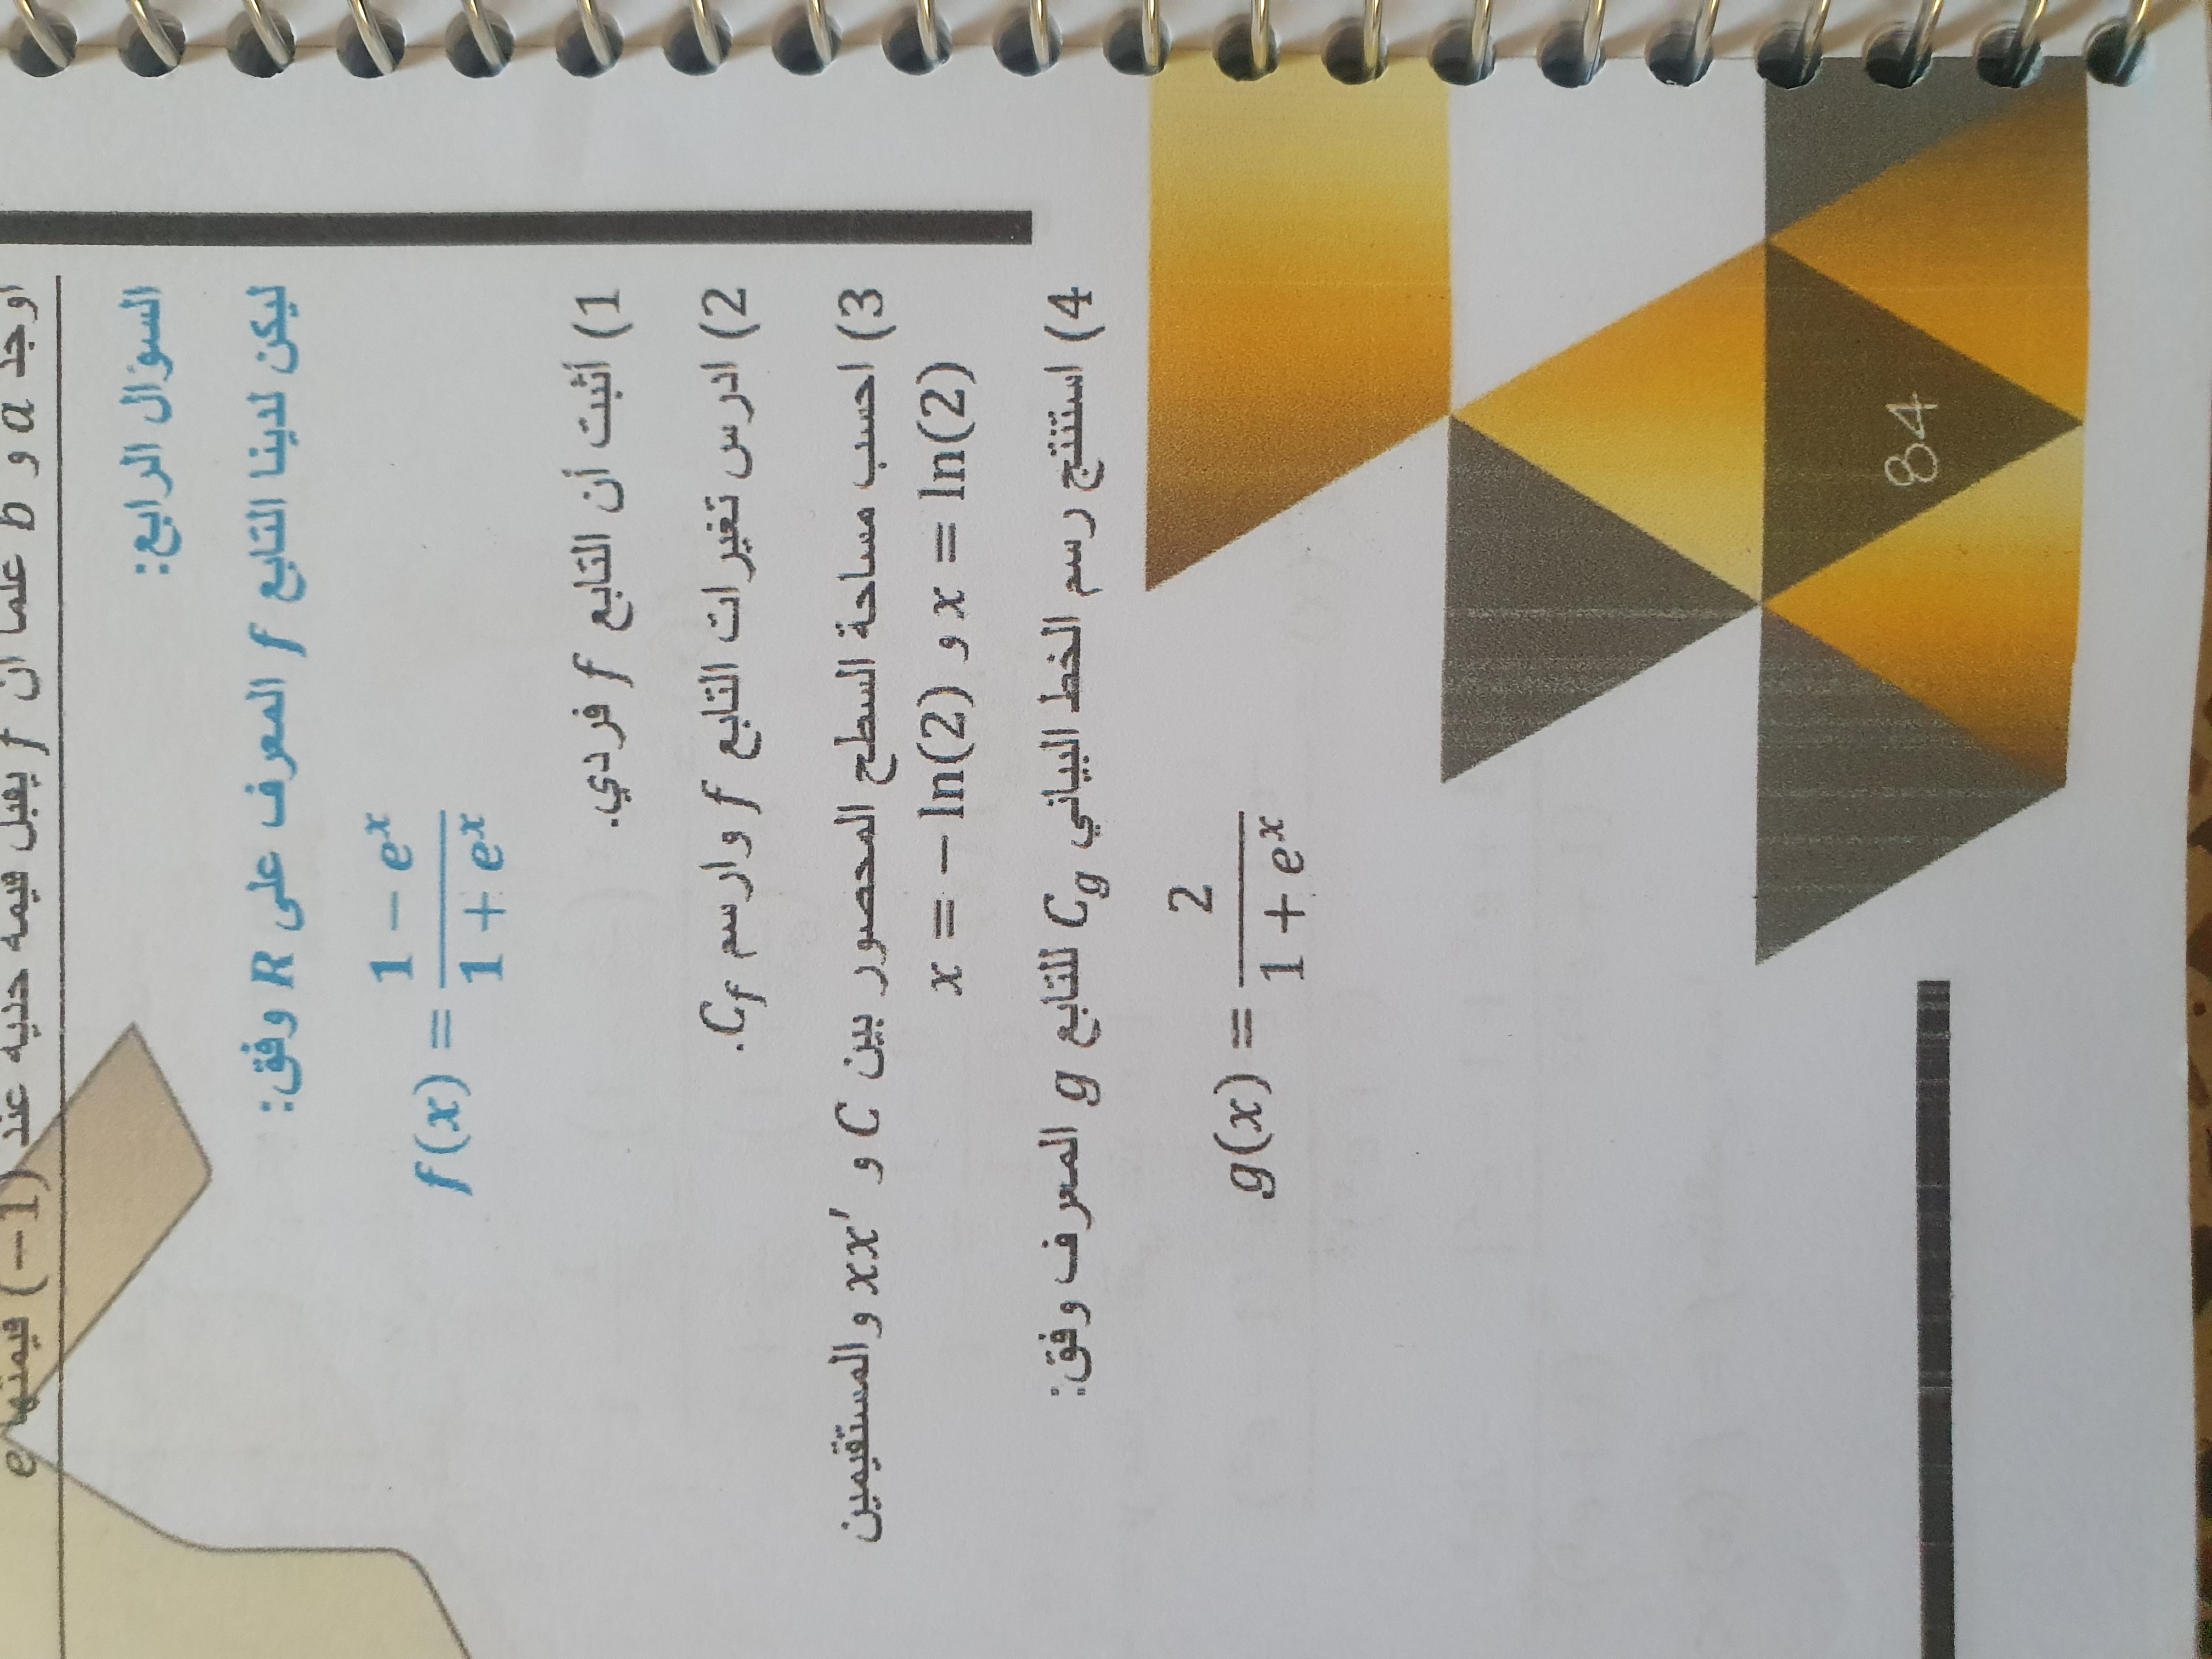 اوجد a و b علما ان f يقبل قيمه حديه عند (−1) قيمتها e
السؤال الرابع:
ليكن لدينا التابع f المعرف على R وفق:
f(x) = \frac{1 − e^x}{1 + e^x}
1) أثبت أن التابع f فردي.
2) ادرس تغيرات التابع f وارسم C_f.
3) احسب مساحة السطح المحصور بين C و xx′ والمستقيمين
x = − ln(2) و x = ln(2)
4) استنتج رسم الخط البياني C_g للتابع g المعرف وفق:
g(x) = \frac{2}{1 + e^x}
84